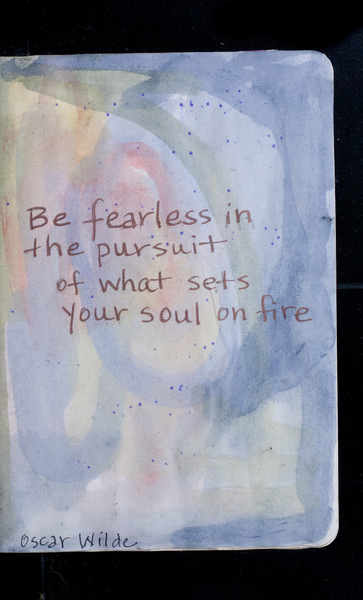 Be fearless in
the pursuit
of what sets
your soul on fire
Oscar Wilde